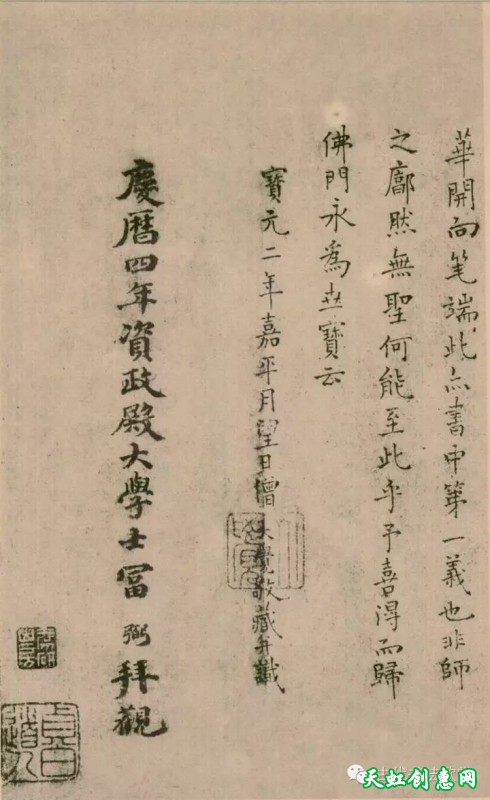 華開向笔端此亦書中第一義也非師
之廓然無聖何能至此乎予喜得而歸
佛門永爲世寶云
寶元二年嘉平月望日僧大覺敬藏并識
慶曆四年資政殿大學士富弼拜觀
天虹创惠网